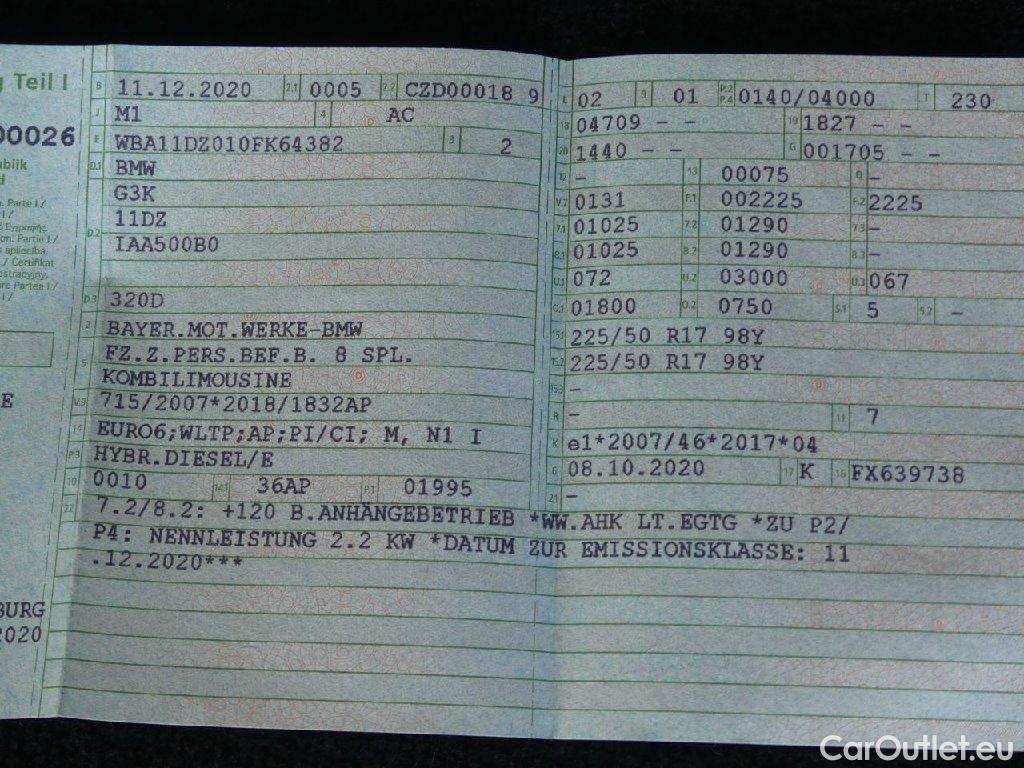 g Teil I
00026
ublik
d
. Parte I /
I /
on. Partie I /
s apliecība.
. / Certifikat
estracyjny.
re Partea I /
I /
E
BURG
2020
B 11.12.2020 2.1 0005 2.2 CZD00018 9
J M1 4 AC
E WBA11DZ010FK64382 3 2
D.1 BMW
G3K
D.2 11DZ
IAA500B0
D.3 320D
2 BAYER.MOT.WERKE-BMW
5 FZ.Z.PERS.BEF.B. 8 SPL.
KOMBILIMOUSINE
V.9 715/2007*2018/1832AP
14 EURO6;WLTP;AP;PI/CI; M, N1 I
P.3 HYBR.DIESEL/E
10 0010 14.1 36AP P.1 01995
L 02 9 01 P.2 P.4 0140/04000 T 230
18 04709 - - 19 1827 - -
20 1440 - - G 001705 - -
12 - 13 00075 Q -
V.7 0131 F.1 002225 F.2 2225
7.1 01025 7.2 01290 7.3 -
8.1 01025 8.2 01290 8.3 -
U.1 072 U.2 03000 U.3 067
O.1 01800 O.2 0750 S.1 5 S.2 -
15.1 225/50 R17 98Y
15.2 225/50 R17 98Y
15.3 -
R - 11 7
K e1*2007/46*2017*04
6 08.10.2020 17 K 16 FX639738
21 -
22 7.2/8.2: +120 B.ANHÄNGEBETRIEB *WW.AHK LT.EGTG *ZU P2/
P4: NENNLEISTUNG 2.2 KW *DATUM ZUR EMISSIONSKLASSE: 11
.12.2020***
CarOutlet.eu